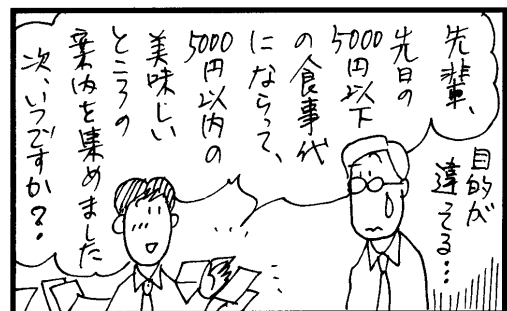 先輩、
先日の
5000円以下
の食事代
にならって、
5000円以内の
美味しい
ところの
案内を集めました
次、いつですか？
目的が
違そる…